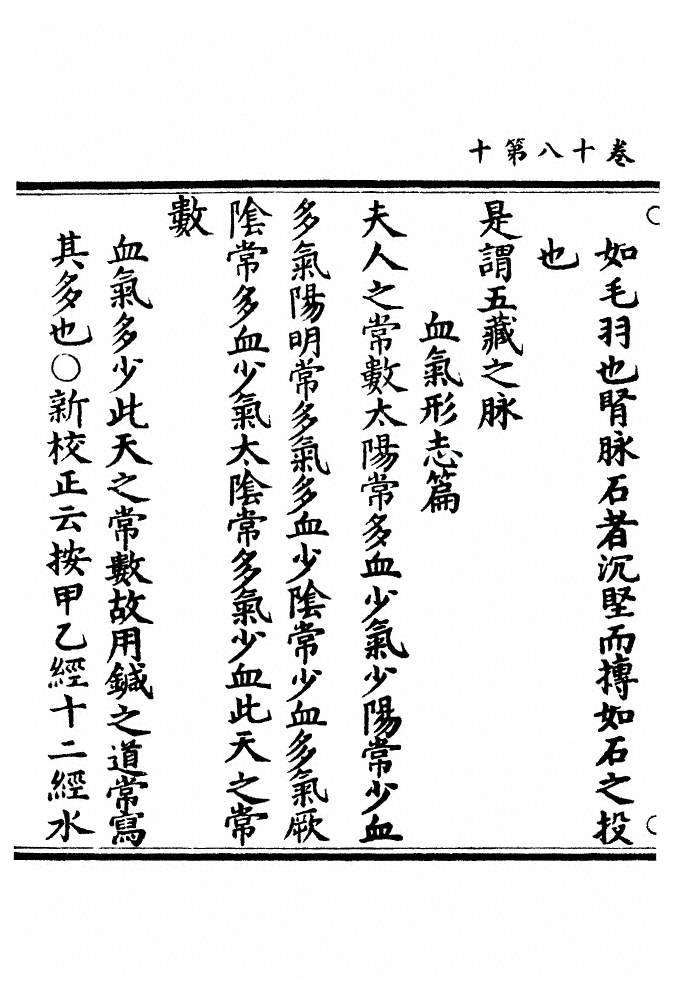 卷十八第十
如毛羽也腎脉石者沉堅而摶如石之投
也
是謂五藏之脉
血氣形志篇
夫人之常數太陽常多血少氣少陽常少血
多氣陽明常多氣多血少陰常少血多氣厥
陰常多血少氣太陰常多氣少血此天之常
數
血氣多少此天之常數故用鍼之道常寫
其多也〇新校正云按甲乙經十二經水